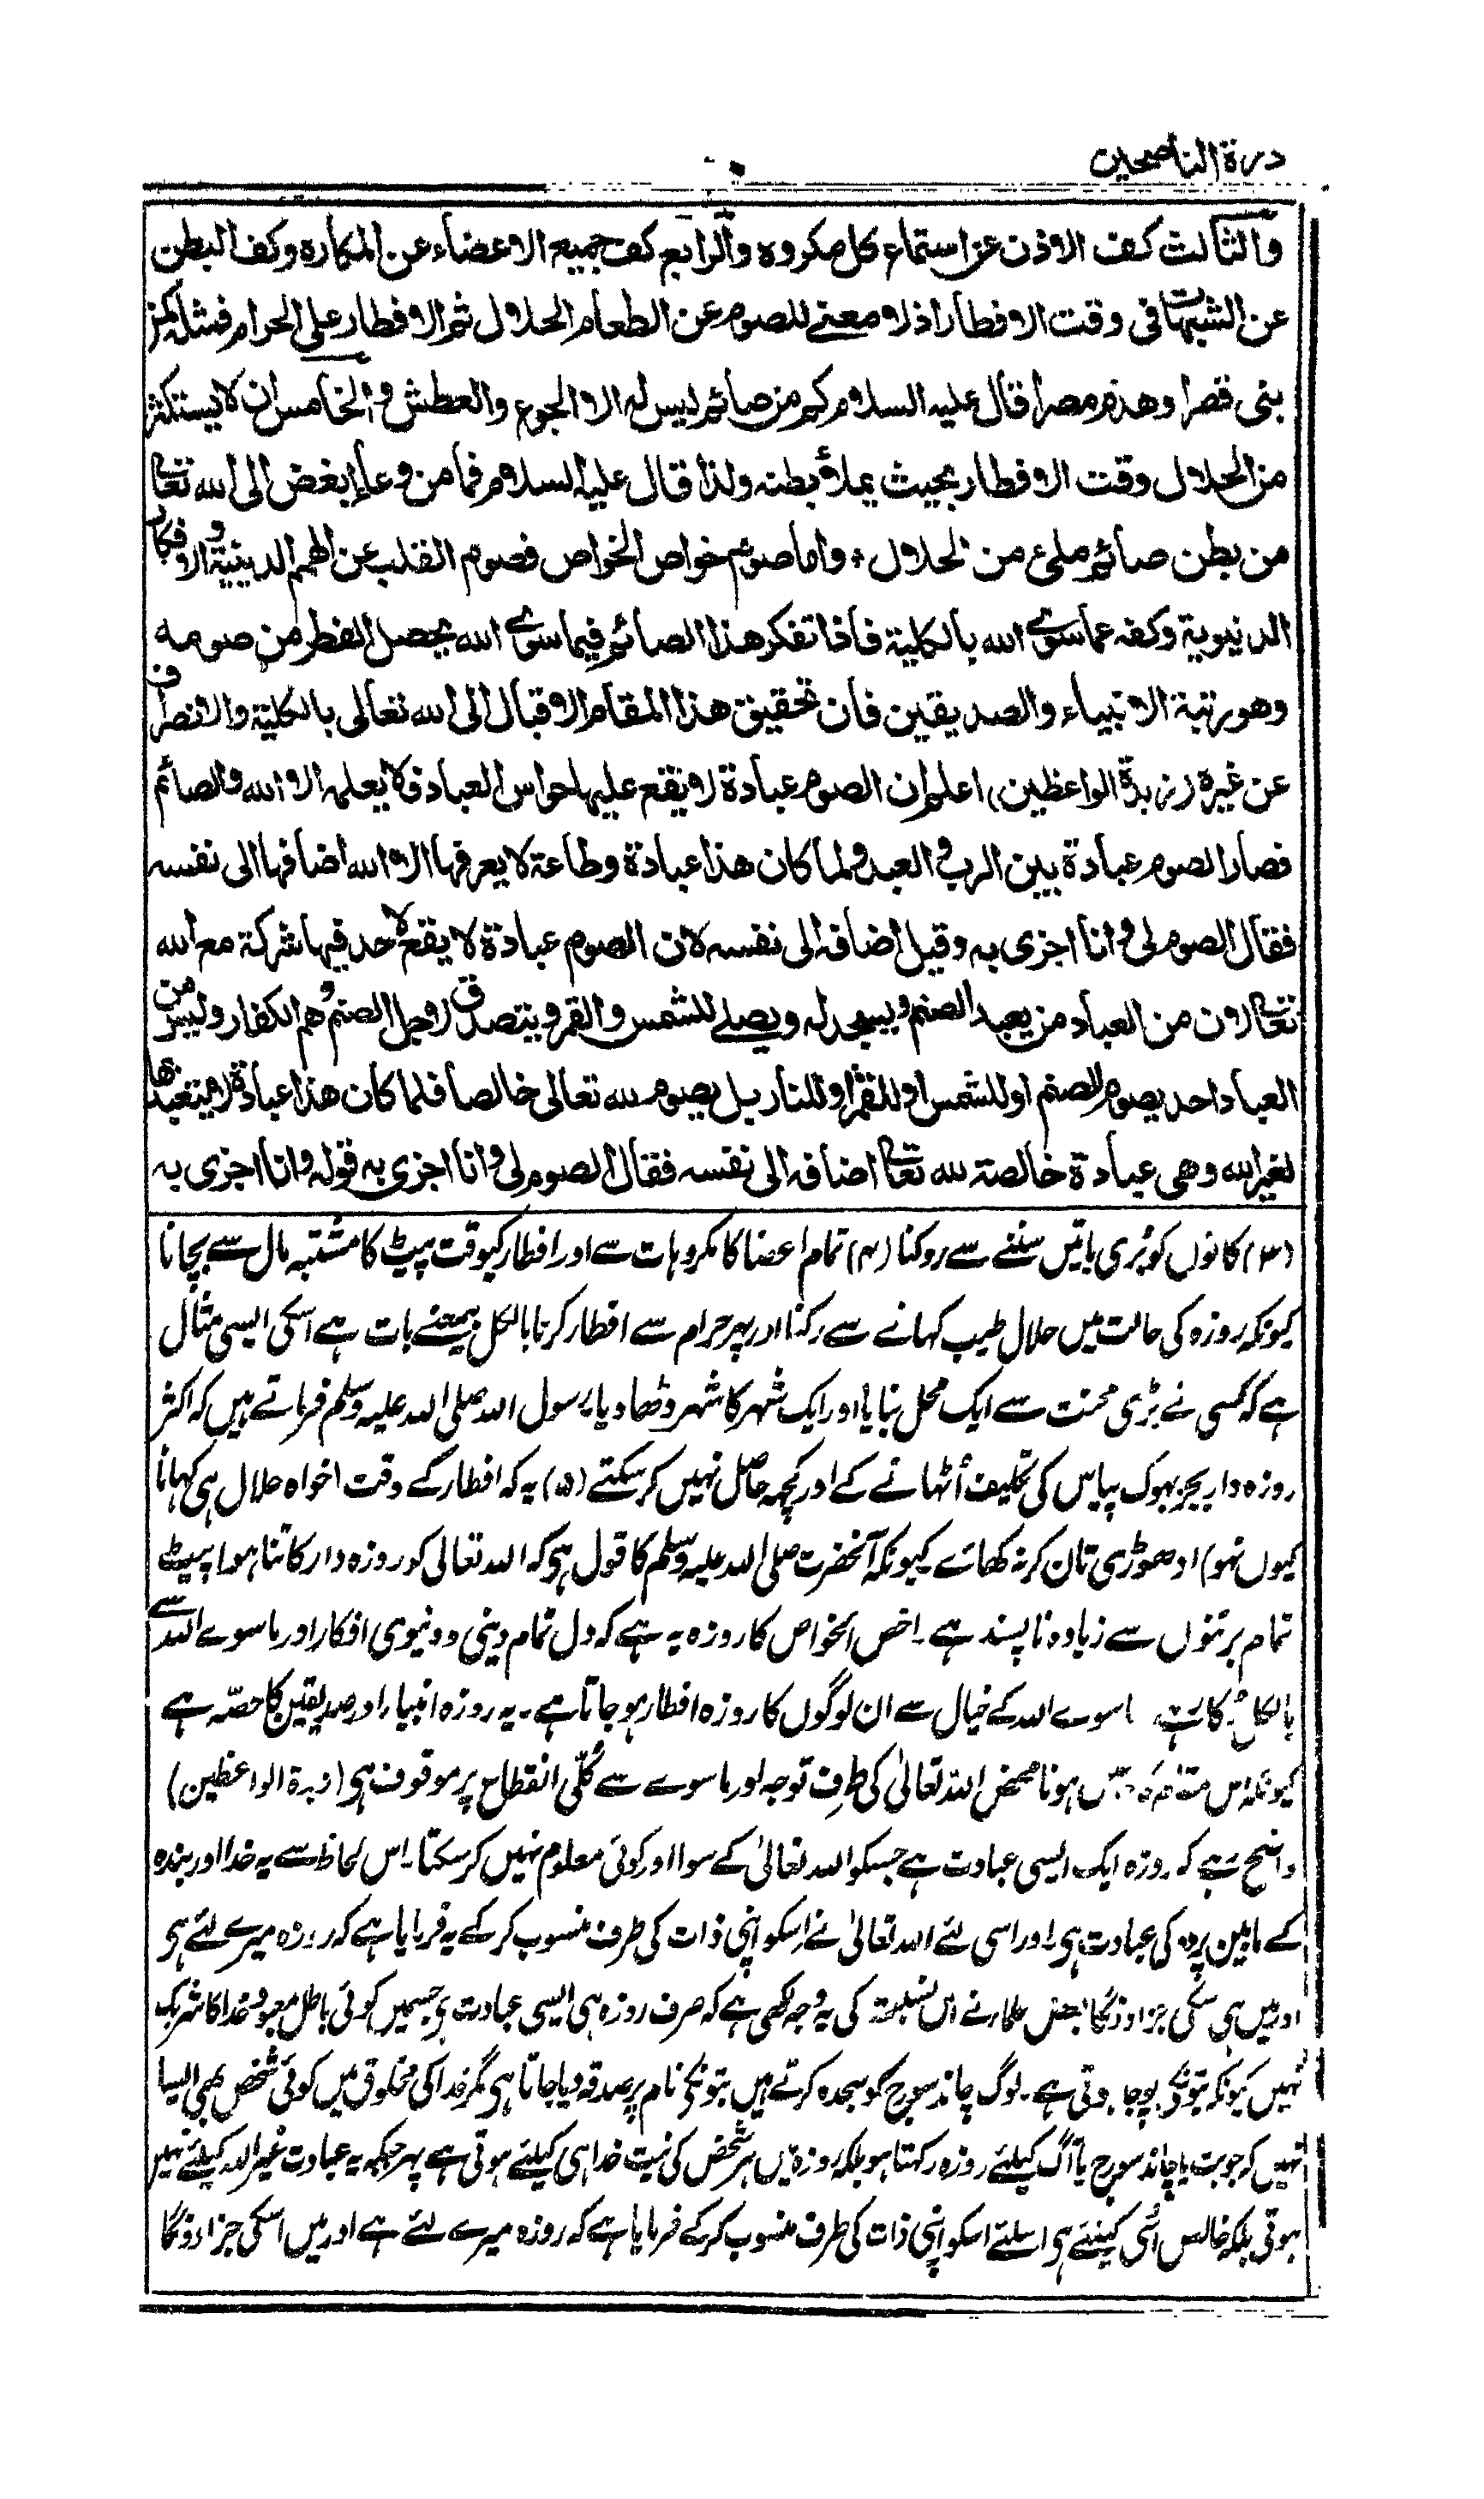 درة الناصحين
والثالث كف الاذن عن استماع كل مكروه والرابع كف جميع الاعضاء عن المكاره وكف البطن
عن الشبهات فى وقت الافطار اذ لا معنى للصوم عن الطعام الحلال ثم الافطار على الحرام فمثله كمن
بنى قصرا وهدم مصرا قال عليه السلام كم من صائم ليس له الا الجوع والعطش والخامس ان لا يستكثر
من الحلال وقت الافطار بحيث يملأ بطنه ولذا قال عليه السلام فما من وعاء ابغض الى الله تعالى
من بطن صائم ملئ من الحلال ٭ واما صوم خواص الخواص فصوم القلب عن الهمم الدينية والافكار
الدنيوية وكفه عما سوى الله بالكلية فاذا تفكر هذا الصائم فيما سوى الله يحصل الفطر من صومه
وهو رتبة الانبياء والصديقين فان تحقيق هذا المقام الاقبال الى الله تعالى بالكلية والانصراف
عن غيره (زبدة الواعظين) اعلم ان الصوم عبادة لا يقع عليها حواس العباد فلا يعلمه الا الله والصائم
فصار الصوم عبادة بين الرب والعبد ولما كان هذا عبادة وطاعة لا يعرفها الا الله اضافها الى نفسه
فقال الصوم لى وانا اجزى به وقيل اضافه الى نفسه لان الصوم عبادة لا يقع لاحد فيها شركة مع الله
تعالى لان من العباد من يعبد الصنم ويسجد له ويصلى للشمس والقمر ويتصدق لاجل الصنم وهم الكفار وليس من
العباد احد يصوم للصنم او للشمس او للقمر او للنار بل يصوم لله تعالى خالصا فلما كان هذا عبادة لا يتعبد بها
لغير الله وهى عبادة خالصة لله تعالى اضافه الى نفسه فقال الصوم لى وانا اجزى به قوله وانا اجزى به
(۳) کانوں کو بُری باتیں سننے سے روکنا (۴) تمام اعضا کا مکروہات سے اور افطار کیوقت پیٹ کا مشتبہ مال سے بچانا
کیونکہ روزہ کی حالت میں حلال طیب کہانے سے رکنا اور پہر حرام سے افطار کرنا بالکل بیمعنے بات ہے اسکی ایسی مثال
ہے کہ کسی نے بڑی محنت سے ایک محل بنایا اور ایک شہر کا شہر ڈھا دیا۔ رسول اللہ صلی اللہ علیہ وسلم فرماتے ہیں کہ اکثر
روزہ دار بجز بہوک پیاس کی تکلیف اُٹہانے کے اور کچھہ حاصل نہیں کر سکتے (۵) یہ کہ افطار کے وقت (خواہ حلال ہی کہانا
کیوں نہو) ادھوڑی تان کر نہ کھائے۔ کیونکہ آنحضرت صلی اللہ علیہ وسلم کا قول ہی کہ اللہ تعالی کو روزہ دار کا تنا ہوا پیٹ
تمام برتنوں سے زیادہ ناپسند ہے۔ اخص الخواص کا روزہ یہ ہے کہ دل تمام دینی و دنیوی افکار اور ماسوے اللہ سے
ماسوے اللہ کے خیال سے ان لوگوں کا روزہ افطار ہو جاتا ہے۔ یہ روزہ انبیا اور صدیقین کا حصّہ ہے
کیونکہ اس ہونا محض اللہ تعالیٰ کی طرف توجہ اور ماسوے سے کُلّی انقطاع پر موقوف ہی (زبدة الواعظین)
واضح رہے کہ روزہ ایک ایسی عبادت ہے جسکو اللہ تعالیٰ کے سوا اور کوئی معلوم نہیں کر سکتا۔ اس لحاظ سے یہ خدا اور بندہ
کے مابین پردہ کی عبادت ہی۔ اور اسی لئے اللہ تعالیٰ نے اِسکو اپنی ذات کی طرف منسوب کر کے یہ فرمایا ہے کہ روزہ میرے لئے ہی
اور میں ہی اسکی جزا دونگا بعض علما نے اس نسبت کی یہ وجہ لکھی ہے کہ صرف روزہ ہی ایسی عبادت ہی جسمیں کوئی باطل معبود خدا کا شریک
نہیں کیونکہ بتونکی پوجا ہوتی ہے۔ لوگ چاند سورج کو سجدہ کرتے ہیں بتونکے نام پر صدقہ دیا جاتا ہی مگر خدا کی مخلوق میں کوئی شخص بھی ایسا
نہیں کہ جو بت یا چاند سورج یا آگ کیلئے روزہ رکہتا ہو بلکہ روزہ میں ہر شخص کی نیت خدا ہی کیلئے ہوتی ہے پہر جبکہ یہ عبادت غیر اللہ کیلئے نہیں
ہوتی بلکہ خالص اُسی کیلئے ہی اسلئے اسکو اپنی ذات کی طرف منسوب کر کے فرمایا ہے کہ روزہ میرے لئے ہے اور میں اسکی جزا دونگا